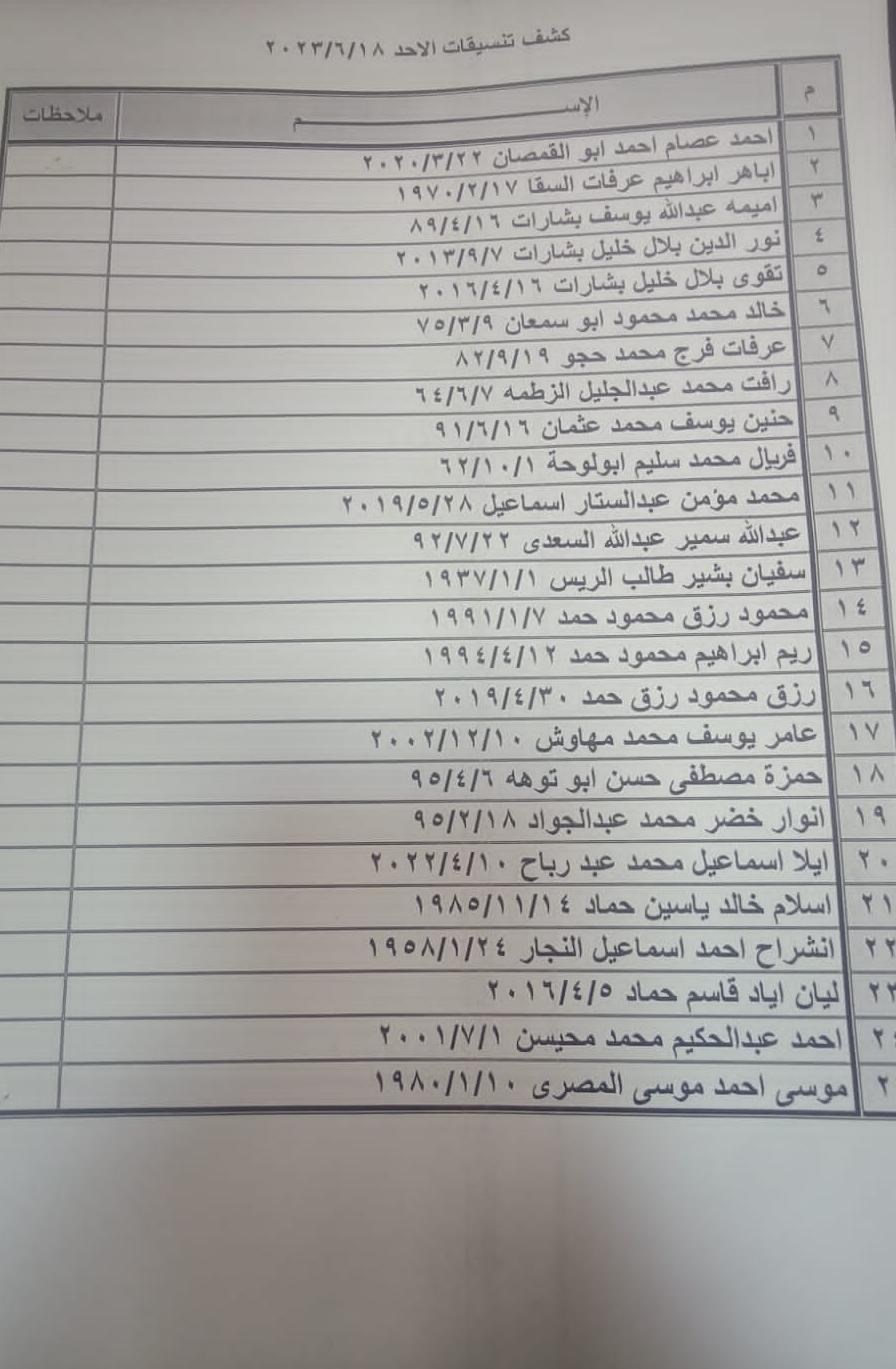 كشف تنسيقات الاحد ٢٠٢٣/٦/١٨
م الإســـــــــم ملاحظات
١ احمد عصام احمد ابو القمصان ٢٠٢٠/٣/٢٢
٢ اباهر ابراهيم عرفات السقا ١٩٧٠/٢/١٧
٣ اميمه عبدالله يوسف بشارات ٨٩/٤/١٦
٤ نور الدين بلال خليل بشارات ٢٠١٣/٩/٧
٥ تقوى بلال خليل بشارات ٢٠١٦/٤/١٦
٦ خالد محمد محمود ابو سمعان ٧٥/٣/٩
٧ عرفات فرج محمد حجو ٨٢/٩/١٩
٨ رافت محمد عبدالجليل الزطمه ٦٤/٦/٧
٩ حنين يوسف محمد عثمان ٩١/٦/١٦
١٠ فريال محمد سليم ابولوحة ٦٢/١٠/١
١١ محمد مؤمن عبدالستار اسماعيل ٢٠١٩/٥/٢٨
١٢ عبدالله سمير عبدالله السعدى ٩٢/٧/٢٢
١٣ سفيان بشير طالب الريس ١٩٣٧/١/١
١٤ محمود رزق محمود حمد ١٩٩١/١/٧
١٥ ريم ابراهيم محمود حمد ١٩٩٤/٤/١٢
١٦ رزق محمود رزق حمد ٢٠١٩/٤/٣٠
١٧ عامر يوسف محمد مهاوش ٢٠٠٢/١٢/١٠
١٨ حمزة مصطفى حسن ابو توهه ٩٥/٤/٦
١٩ انوار خضر محمد عبدالجواد ٩٥/٢/١٨
٢٠ ايلا اسماعيل محمد عبد رباح ٢٠٢٢/٤/١٠
٢١ اسلام خالد ياسين حماد ١٩٨٥/١١/١٤
٢٢ انشراح احمد اسماعيل النجار ١٩٥٨/١/٢٤
٢٣ ليان اياد قاسم حماد ٢٠١٦/٤/٥
٢٤ احمد عبدالحكيم محمد محيسن ٢٠٠١/٧/١
٢ موسى احمد موسى المصرى ١٩٨٠/١/١٠